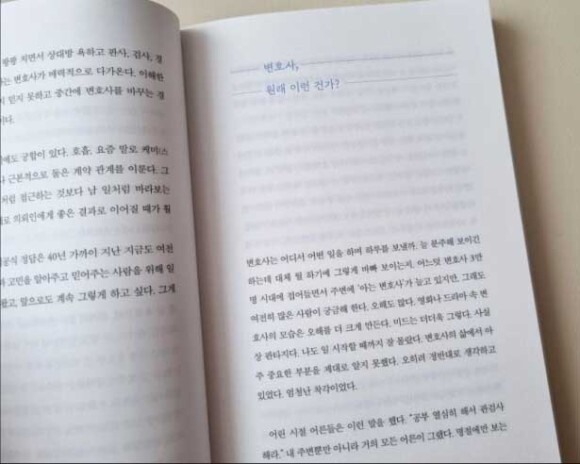 쾅쾅 치면서 상대방 욕하고 판사, 검사, 경
는 변호사가 매력적으로 다가온다. 이해한
지 믿지 못하고 중간에 변호사를 바꾸는 경
이다.
에도 궁합이 있다. 호흡, 요즘 말로 케미스
나 근본적으로 둘은 계약 관계를 이룬다. 그
처럼 접근하는 것보다 남 일처럼 바라보는
로 의뢰인에게 좋은 결과로 이어질 때가 훨
공식 정답은 40년 가까이 지난 지금도 여전
고민을 알아주고 믿어주는 사람을 위해 일
왔고, 앞으로도 계속 그렇게 하고 싶다. 그게
변호사,
원래 이런 건가?
변호사는 어디서 어떤 일을 하며 하루를 보낼까. 늘 분주해 보이긴
하는데 대체 뭘 하기에 그렇게 바빠 보이는지. 어느덧 변호사 3만
명 시대에 접어들면서 주변에 '아는 변호사'가 늘고 있지만, 그래도
여전히 많은 사람이 궁금해 한다. 오해도 많다. 영화나 드라마 속 변
호사의 모습은 오해를 더 크게 만든다. 미드는 더더욱 그렇다. 사실
상 판타지다. 나도 일 시작할 때까지 잘 몰랐다. 변호사의 삶에서 아
주 중요한 부분을 제대로 알지 못했다. 오히려 정반대로 생각하고
있었다. 엄청난 착각이었다.
어린 시절 어른들은 이런 말을 했다. "공부 열심히 해서 판검사
해라." 내 주변뿐만 아니라 거의 모든 어른이 그랬다. 명절에만 보는